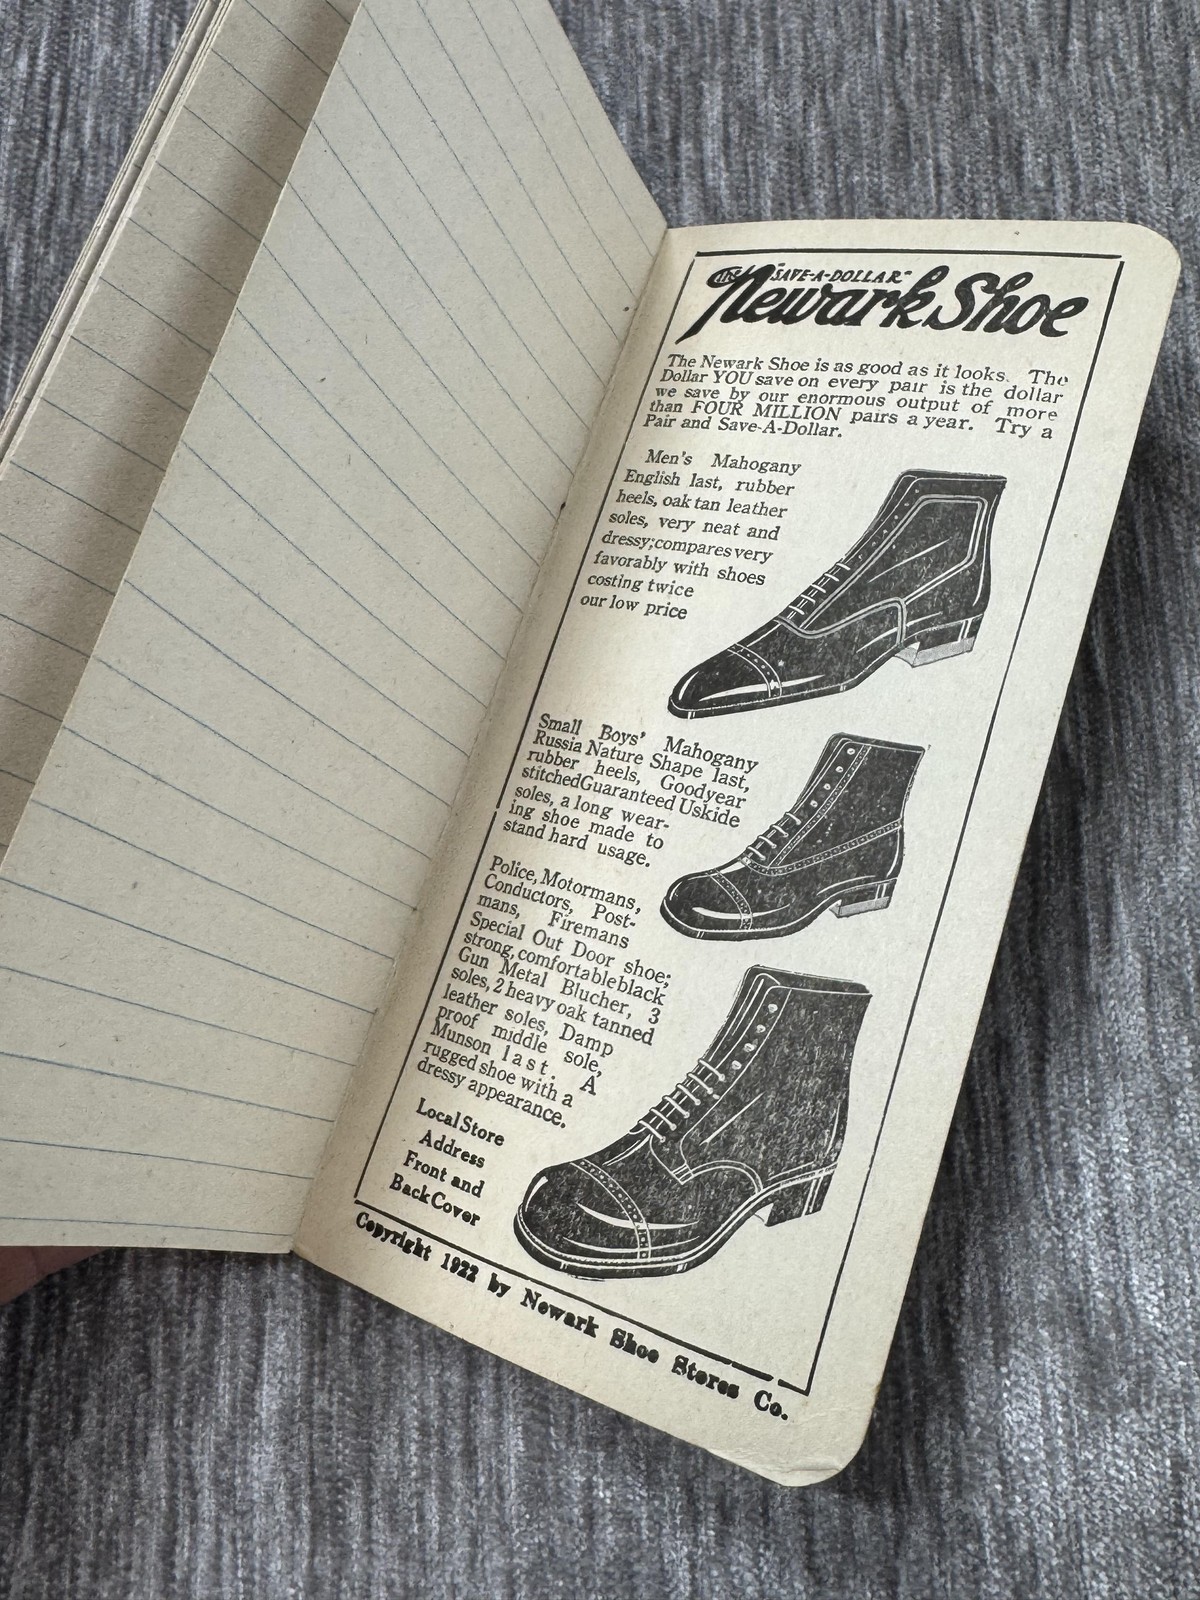 The "SAVE-A-DOLLAR"
Newark Shoe
The Newark Shoe is as good as it looks. The
Dollar YOU save on every pair is the dollar
we save by our enormous output of more
than FOUR MILLION pairs a year. Try a
Pair and Save-A-Dollar.
Men's Mahogany
English last, rubber
heels, oak tan leather
soles, very neat and
dressy; compares very
favorably with shoes
costing twice
our low price
Small Boys' Mahogany
Russia Nature Shape last,
rubber heels, Goodyear
stitched Guaranteed Uskide
soles, a long wear-
ing shoe made to
stand hard usage.
Police, Motormans,
Conductors, Post-
mans, Firemans
Special Out Door shoe;
strong, comfortable black
Gun Metal Blucher, 3
soles, 2 heavy oak tanned
leather soles, Damp
proof middle sole,
Munson last. A
rugged shoe with a
dressy appearance.
Local Store
Address
Front and
Back Cover
Copyright 1922 by Newark Shoe Stores Co.